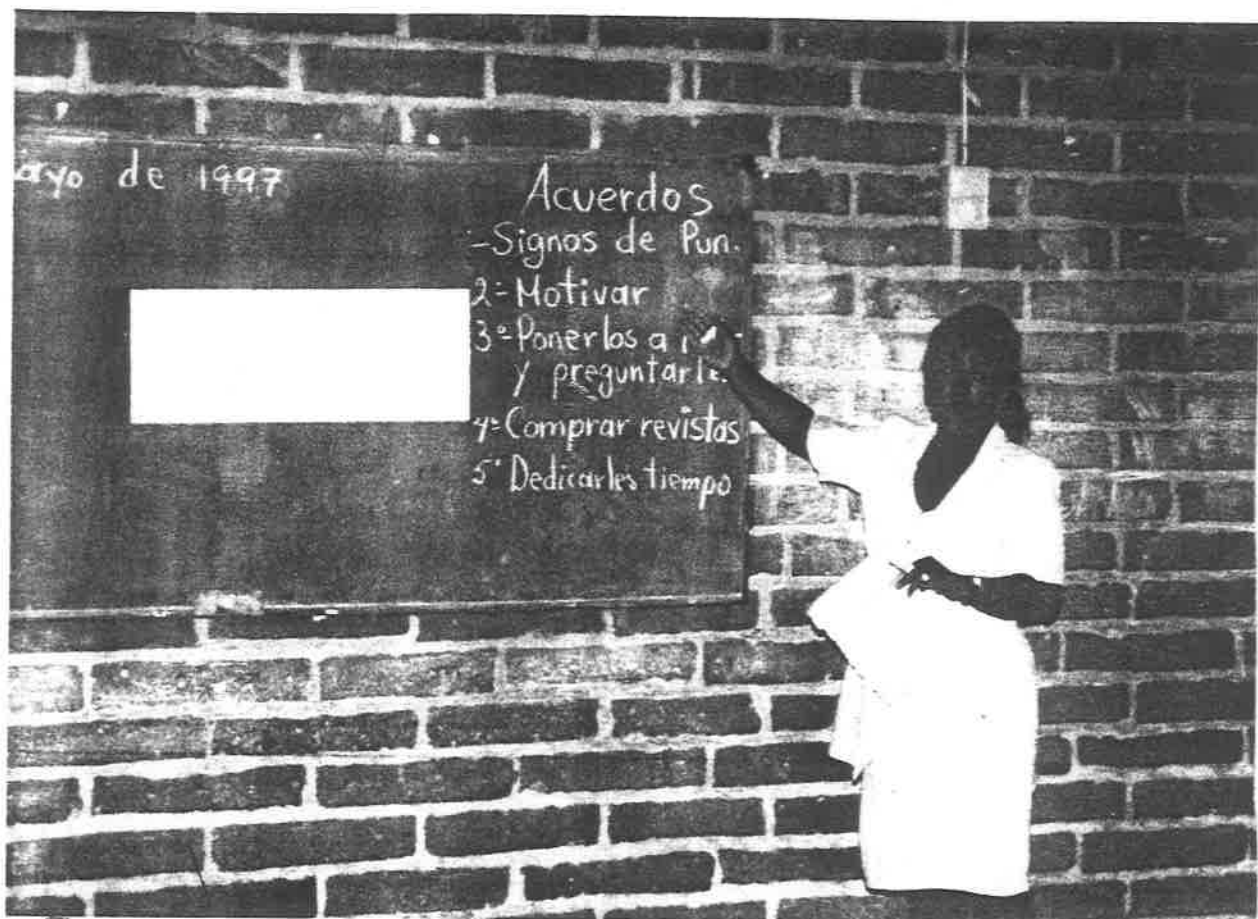 ayo de 1997
Acuerdos
- Signos de Pun.
2º- Motivar
3º- Ponerlos a
y preguntarle
4º- Comprar revistas
5º Dedicarles tiempo